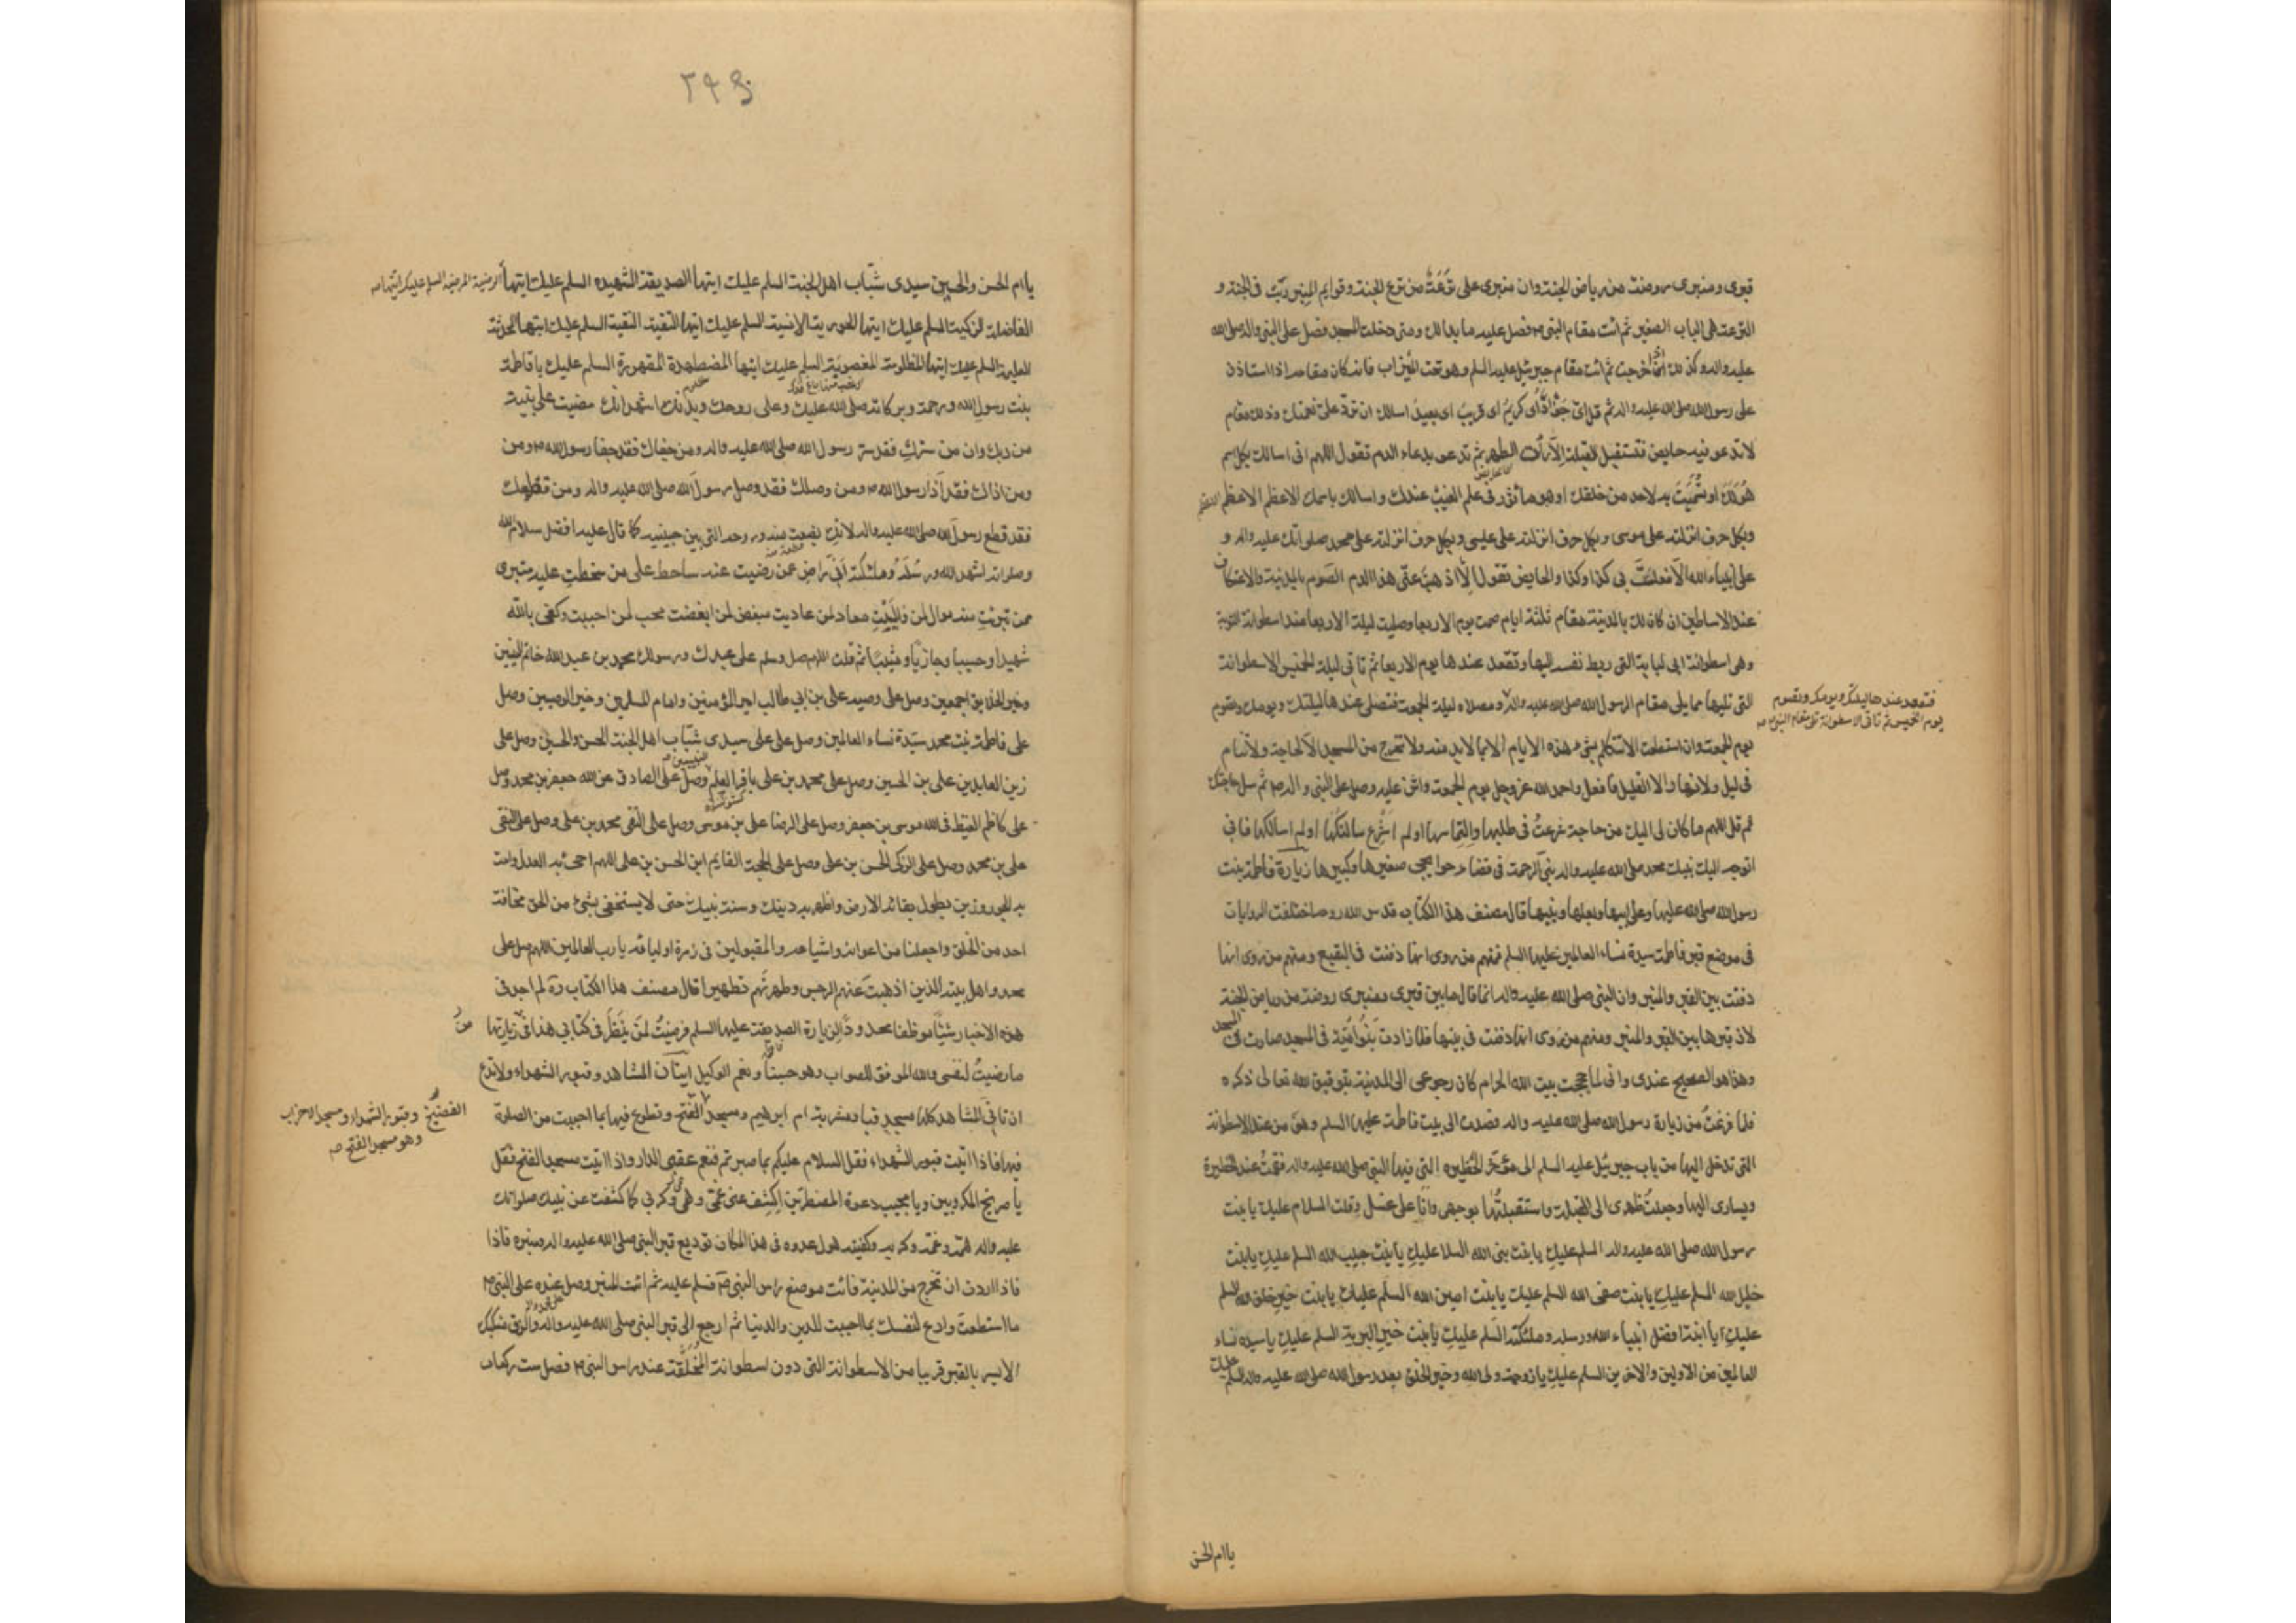 قبرى ومنبرى روضة من رياض الجنة وان منبرى على ترعة من ترع الجنة وقوايم المنبر ربّت فى الجنة و
الترعة هى الباب الصغير ثم ائت مقام النبى ص فصل عليه ما بدا لك ومتى دخلت المسجد فصل على النبى واله صلى الله
عليه واله وكذلك اذا خرجت ثم ائت مقام جبرئيل عليه السلم وهو تحت الميزاب فانه كان مقامه اذا استاذن
على رسول الله صلى الله عليه واله ثم قل اى جواد اى كريم اى قريب اى بعيد اسالك ان ترد على نعمتك وذلك مقام
لا تدعو فيه حايض فتستقبل القبلة الا رات الطهر ثم تدعو بدعاء الدم تقول اللهم انى اسالك بكل اسم
هو لك او تسميت به لاحد من خلقك او هو ماثور فى علم الغيب عندك واسالك باسمك الاعظم الاعظم الاعظم
وبكل حرف انزلته على موسى وبكل حرف انزلته على عيسى وبكل حرف انزلته على محمد صلواتك عليه واله و
على انبياء الله الا فعلت بى كذا وكذا والحايض تقول الا اذهبت عنى هذا الدم الصوم بالمدينة والاعتكاف
عند الاساطين ان كان لك بالمدينة مقام ثلثة ايام صمت يوم الاربعا وصليت ليلة الاربعا عند اسطوانة التوبة
وهى اسطوانة ابى لبابة التى ربط نفسه اليها وتقعد عندها يوم الاربعا ثم تاتى ليلة الخميس الاسطوانة
التى تليها مما يلى مقام الرسول الله صلى الله عليه واله ومصلاه ليلة الجمعة فتصلى عندها ليلتك ويومك وتصوم
فتقعد عندها ليلتك ويومك وتصوم
يوم الخميس ثم تاتى الاسطوانة التى مقام النبى ص
يوم الجمعة وان استطعت الا تتكلم بشىء هذه الايام الا بما لا بد منه ولا تخرج من المسجد الا لحاجة ولا تنام
فى ليل ولا نهار الا القليل فافعل واحمد الله عز وجل يوم الجمعة واثن عليه وصل على النبى واله ص ثم سل حاجتك
ثم قل اللهم ما كان لى اليك من حاجة شرعت فى طلبها والتماسها او لم اشرع سالتكها او لم اسالكها فانى
اتوجه اليك بنبيك محمد صلى الله عليه واله نبى الرحمة فى قضاء حوايجى صغيرها وكبيرها زيارة فاطمة بنت
رسول الله صلى الله عليها وعلى ابيها وبعلها وبنيها قال مصنف هذا الكتاب قدس الله روحه اختلفت الروايات
فى موضع قبر فاطمة سيدة نساء العالمين عليها السلم فمنهم من روى انها دفنت فى البقيع ومنهم من روى انها
دفنت بين القبر والمنبر وان النبى صلى الله عليه واله انما قال ما بين قبرى ومنبرى روضة من رياض الجنة
لان قبرها بين القبر والمنبر ومنهم من روى انها دفنت فى بيتها فلما زادت بنو امية فى المسجد صارت فى المسجد
وهذا هو الصحيح عندى وانى لما حججت بيت الله الحرام كان رجوعى الى المدينة بتوفيق الله تعالى ذكره
فلما فرغت من زيارة رسول الله صلى الله عليه واله قصدت الى بيت فاطمة عليها السلم وهو من عند الاسطوانة
التى تدخل اليها من باب جبرئيل عليه السلم الى مؤخر الحظيرة التى فيها النبى صلى الله عليه واله فقمت عند الحظيرة
ويسارى اليها وجعلت ظهرى الى القبلة واستقبلتها بوجهى وانا على غسل وقلت السلام عليك يا بنت
رسول الله صلى الله عليه واله السلم عليك يا بنت نبى الله السلا عليك يا بنت حبيب الله السلم عليك يا بنت
خليل الله السلم عليك يا بنت صفى الله السلم عليك يا بنت امين الله السلم عليك يا بنت خير خلق الله السلم
عليك يا ابنة افضل انبياء الله ورسله وملئكته السلم عليك يا بنت خير البرية السلم عليك يا سيده نساء
العالمين من الاولين والاخرين السلم عليك يا زوجة ولى الله وخير الخلق بعد رسول الله صلى الله عليه واله السلم عليك
يا ام الحسن
٢٩٥
يا ام الحسن والحسين سيدى شباب اهل الجنة السلم عليك ايتها الصديقة الشهيده السلم عليك ايتها الرضية المرضية السلم عليك ايتها
الفاضلة الزكية السلم عليك ايتها الحورية الانسية السلم عليك ايتها التقية النقية السلم عليك ايتها المحدثة
العليمة السلم عليك ايتها المظلومة المغصوبة السلم عليك ايتها المضطهدة المقهورة السلم عليك يا فاطمة
بنت رسول الله ورحمة وبركاته صلى الله عليك وعلى روحك وبدنك اشهد انك مضيت على بينة
من ربك وان من سرك فقد سر رسول الله صلى الله عليه واله ومن جفاك فقد جفا رسول الله ص ومن
ومن اذاك فقد آذا رسول الله ص ومن وصلك فقد وصل رسول الله صلى الله عليه واله ومن قطعك
فقد قطع رسول الله صلى الله عليه واله لانك بضعة منه وروحه التى بين جنبيه كما قال عليه افضل سلام الله
وصلواته اشهد الله ورسله وملئكته انى راض عمن رضيت عنه ساخط على من سخطت عليه متبرى
ممن تبريت منه موال لمن واليت معاد لمن عاديت مبغض لمن ابغضت محب لمن احببت وكفى بالله
شهيدا وحسيبا وجازيا ومثيبا ثم قلت اللهم صل وسلم على عبدك ورسولك محمد بن عبد الله خاتم النبيين
وخير الخلايق اجمعين وصل على وصيه على بن ابى طالب امير المؤمنين وامام المسلمين وخير الوصيين وصل
على فاطمة بنت محمد سيدة نساء العالمين وصل على على سيدى شباب اهل الجنة الحسن والحسين وصل على
زين العابدين على بن الحسين وصل على محمد بن على باقر العلم وصل على الصادق عن الله جعفر بن محمد وصل
على كاظم الغيظ فى الله موسى بن جعفر وصل على الرضا على بن موسى وصل على التقى محمد بن على وصل على النقى
على بن محمد وصل على الزكى الحسن بن على وصل على الحجة القايم ابن الحسن بن على اللهم احى به العدل وامت
به الجور وزين بطول بقائه الارض واظهر به دينك وسنة نبيك حتى لا يستخفى بشىء من الحق مخافة
احد من الخلق واجعلنا من اعوانه واشياعه والمقبولين فى زمرة اوليائه يا رب العالمين اللهم صل على
محمد واهل بيته الذين اذهبت عنهم الرجس وطهرتهم تطهيرا قال مصنف هذا الكتاب ره لم اجد فى
هذه الاخبار شيئا موظفا محدودا لزيارة الصديقة عليها السلم فرضيت لمن ينظر فى كتابى هذا فى زيارتها من
ما رضيت لنفسى والله الموفق للصواب وهو حسبنا ونعم الوكيل ايتان المشاهد وقبور الشهداء ولا تدع
ان تاتى المشاهد كلها مسجد قبا ومشربة ام ابرهيم ومسجد الفتح وتطوع فيها بما احببت من الصلوة
الفضيخ وقبور الشهداء ومسجد الاحزاب
وهو مسجد الفتح
فيها فاذا اتيت قبور الشهداء فقل السلام عليكم بما صبرتم فنعم عقبى الدار واذا اتيت مسجد الفتح فقل
يا صريخ المكروبين ويا مجيب دعوة المضطرين اكشف عنى غمى وهمى وكربى كما كشفت عن نبيك صلواتك
عليه واله همه وغمه وكربه وكفيته هول عدوه فى هذا المكان توديع قبر النبى صلى الله عليه واله ومنبره فاذا
فاذا اردت ان تخرج من المدينة فائت موضع راس النبى ص فسلم عليه ثم ائت المنبر وصل عنده على النبى ص
ما استطعت وادع لنفسك بما احببت للدين والدنيا ثم ارجع الى قبر النبى صلى الله عليه واله والزق منكبك
الايسر بالقبر قريبا من الاسطوانة التى دون اسطوانة المخلقة عند راس النبى ص فصل ست ركعات